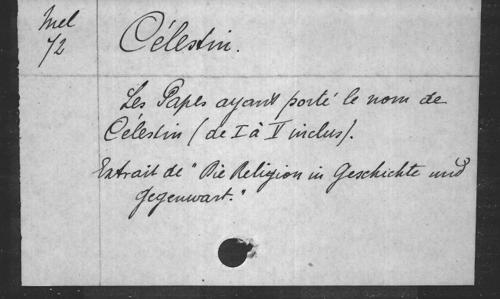 Mel
72
Célestin.
Les Papes ayant porté le nom de
Célestin (de I à V inclus).
Extrait de "Die Religion in Geschichte und
Gegenwart."